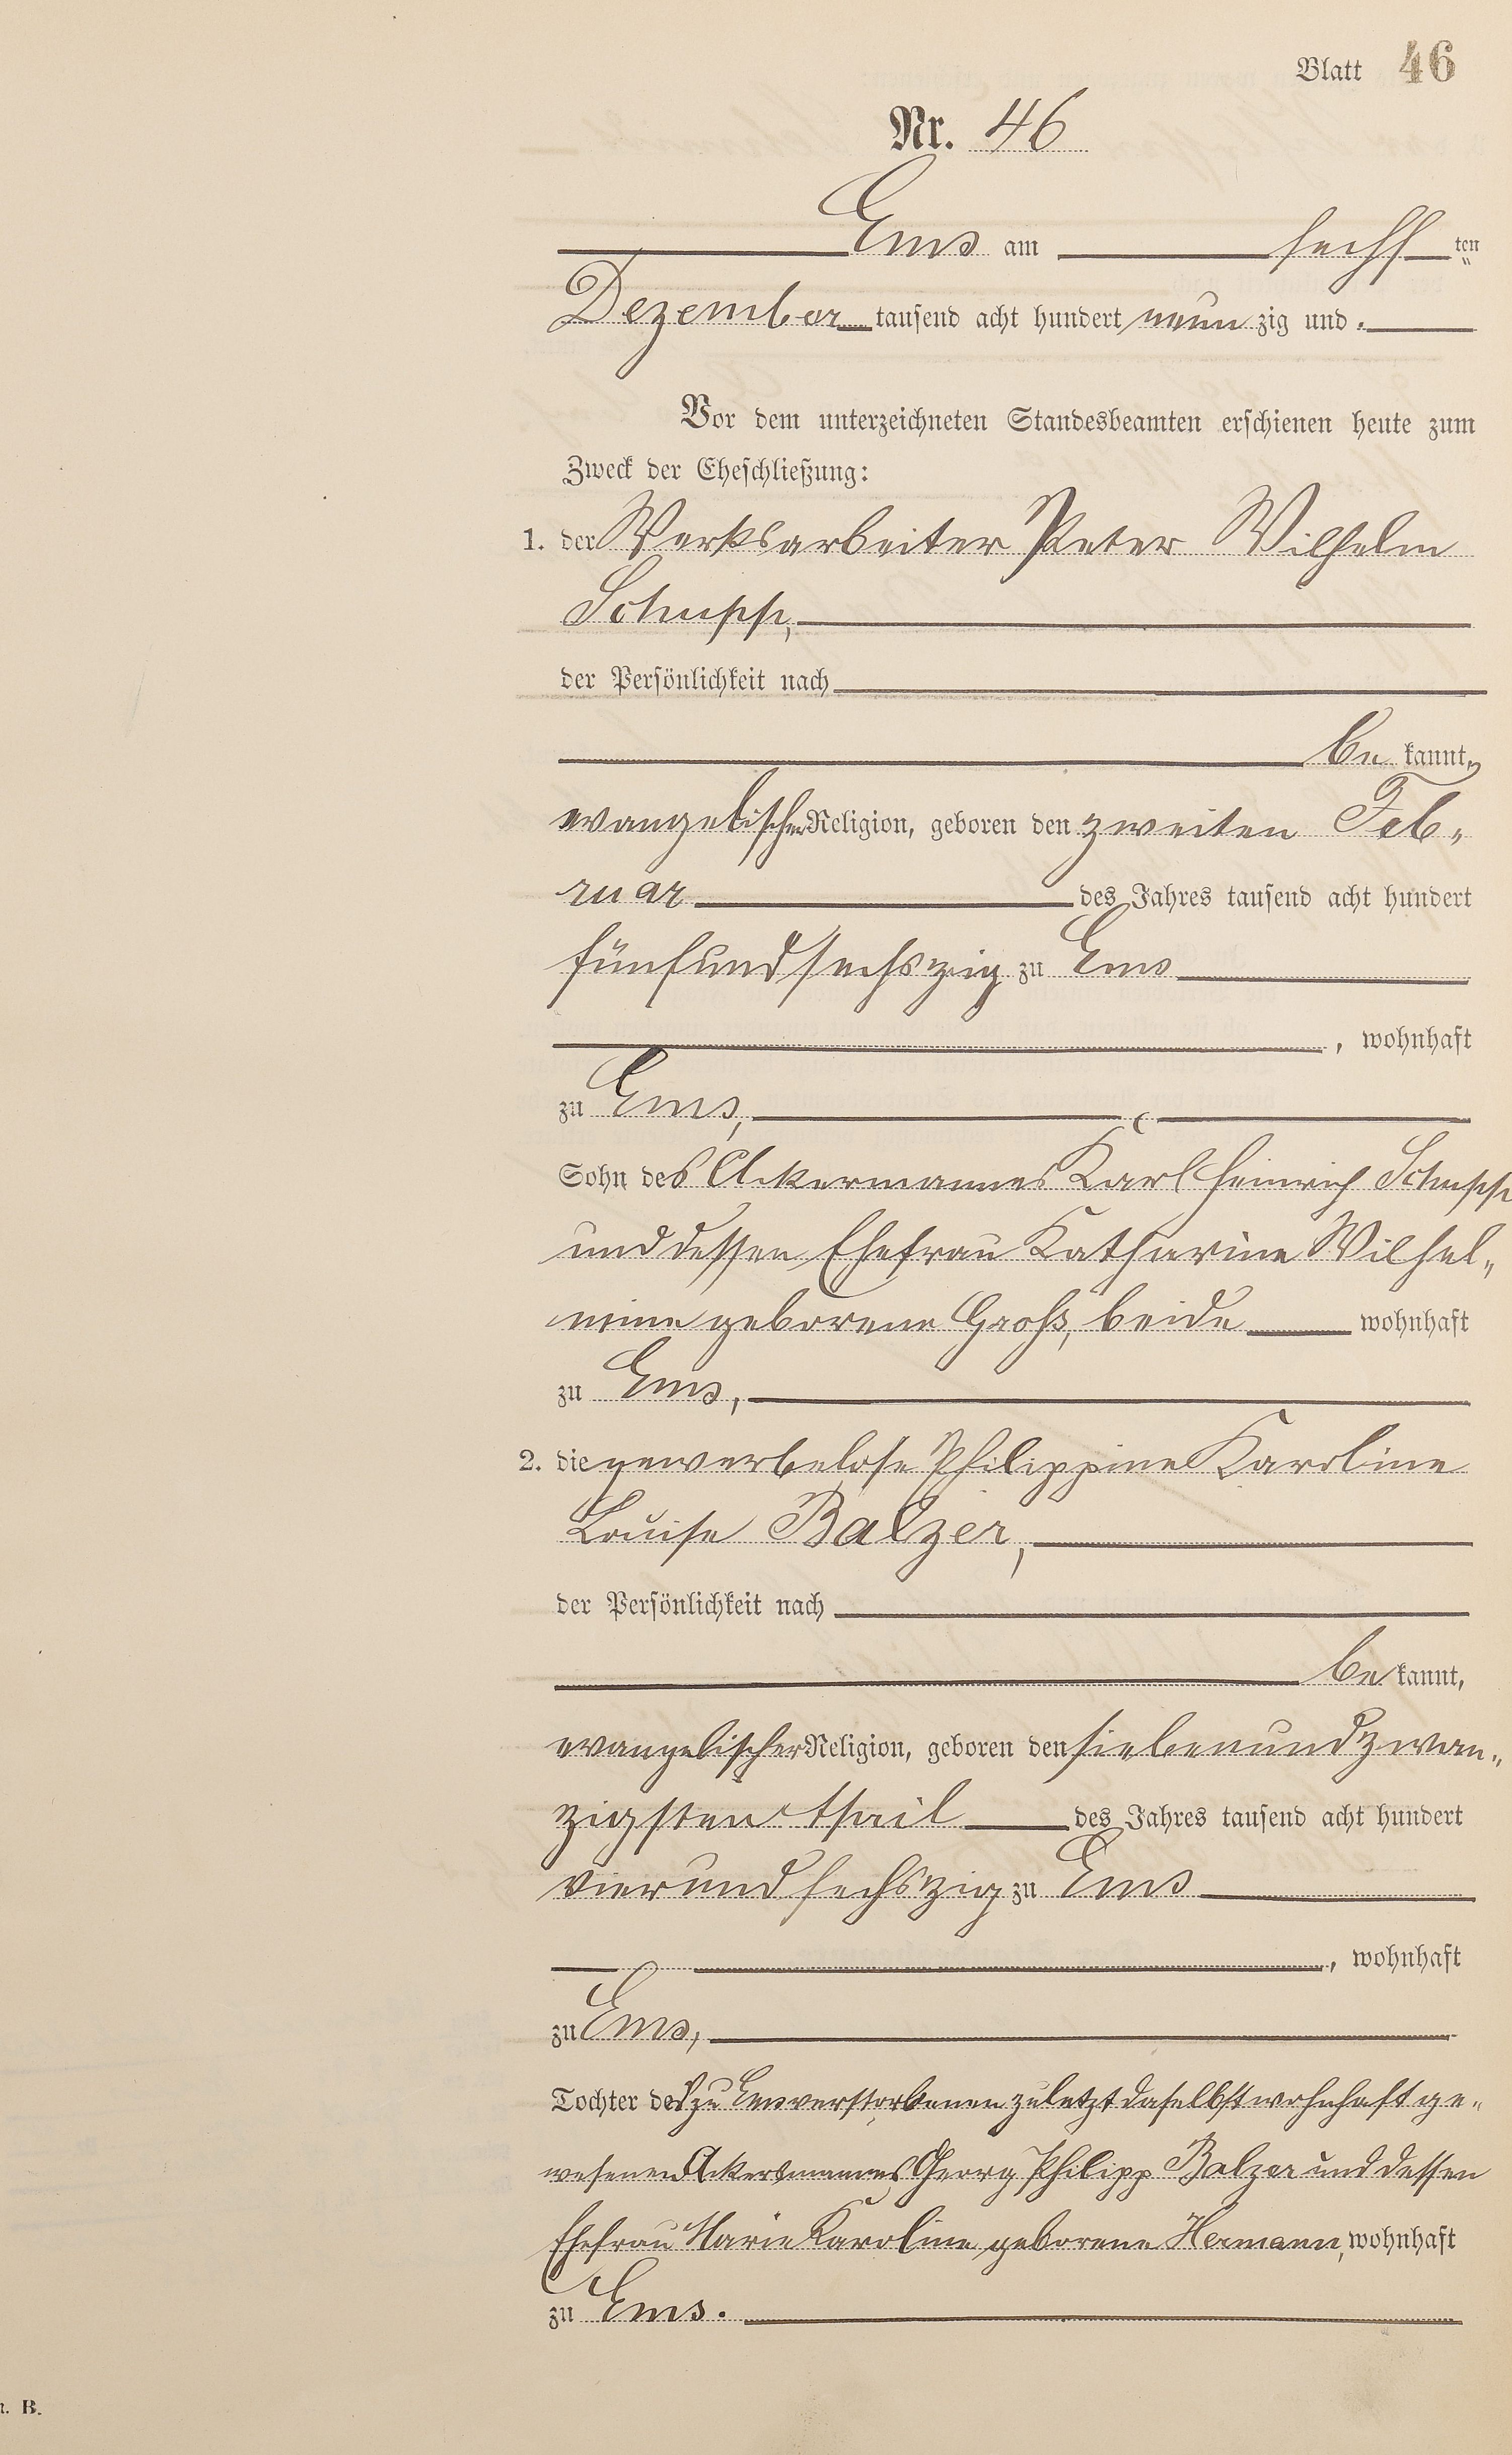 Blatt 46
Nr. 46
Ems am sechs ten
Dezember tausend acht hundert neun zig und
Vor dem unterzeichneten Standesbeamten erschienen heute zum
Zweck der Eheschließung:
1. der Werksarbeiter Peter Wilhelm
Schupp,
der Persönlichkeit nach
be kannt,
evangelischer Religion, geboren den zweiten Feb-
ruar des Jahres tausend acht hundert
fünfundsechszig zu Ems
, wohnhaft
zu Ems,
Sohn des Ackermannes Karl Heinrich Schupp
und dessen Ehefrau Katharine Wilhel-
mine geborene Groß, beide wohnhaft
zu Ems,
2. die gewerbelose Philippine Karoline
Louise Balzer,
der Persönlichkeit nach
be kannt,
evangelischer Religion, geboren den siebenundzwan-
zigsten des Jahres tausend acht hundert
vierundsechszig zu Ems
, wohnhaft
zu Ems,
Tochter des zu Ems verstorbenen zuletzt daselbst wohnhaft ge-
wesenen Ackersmannes Georg Philipp Balzer und dessen
Ehefrau Marie Karoline geborene Hermann, wohnhaft
zu Ems.
B.